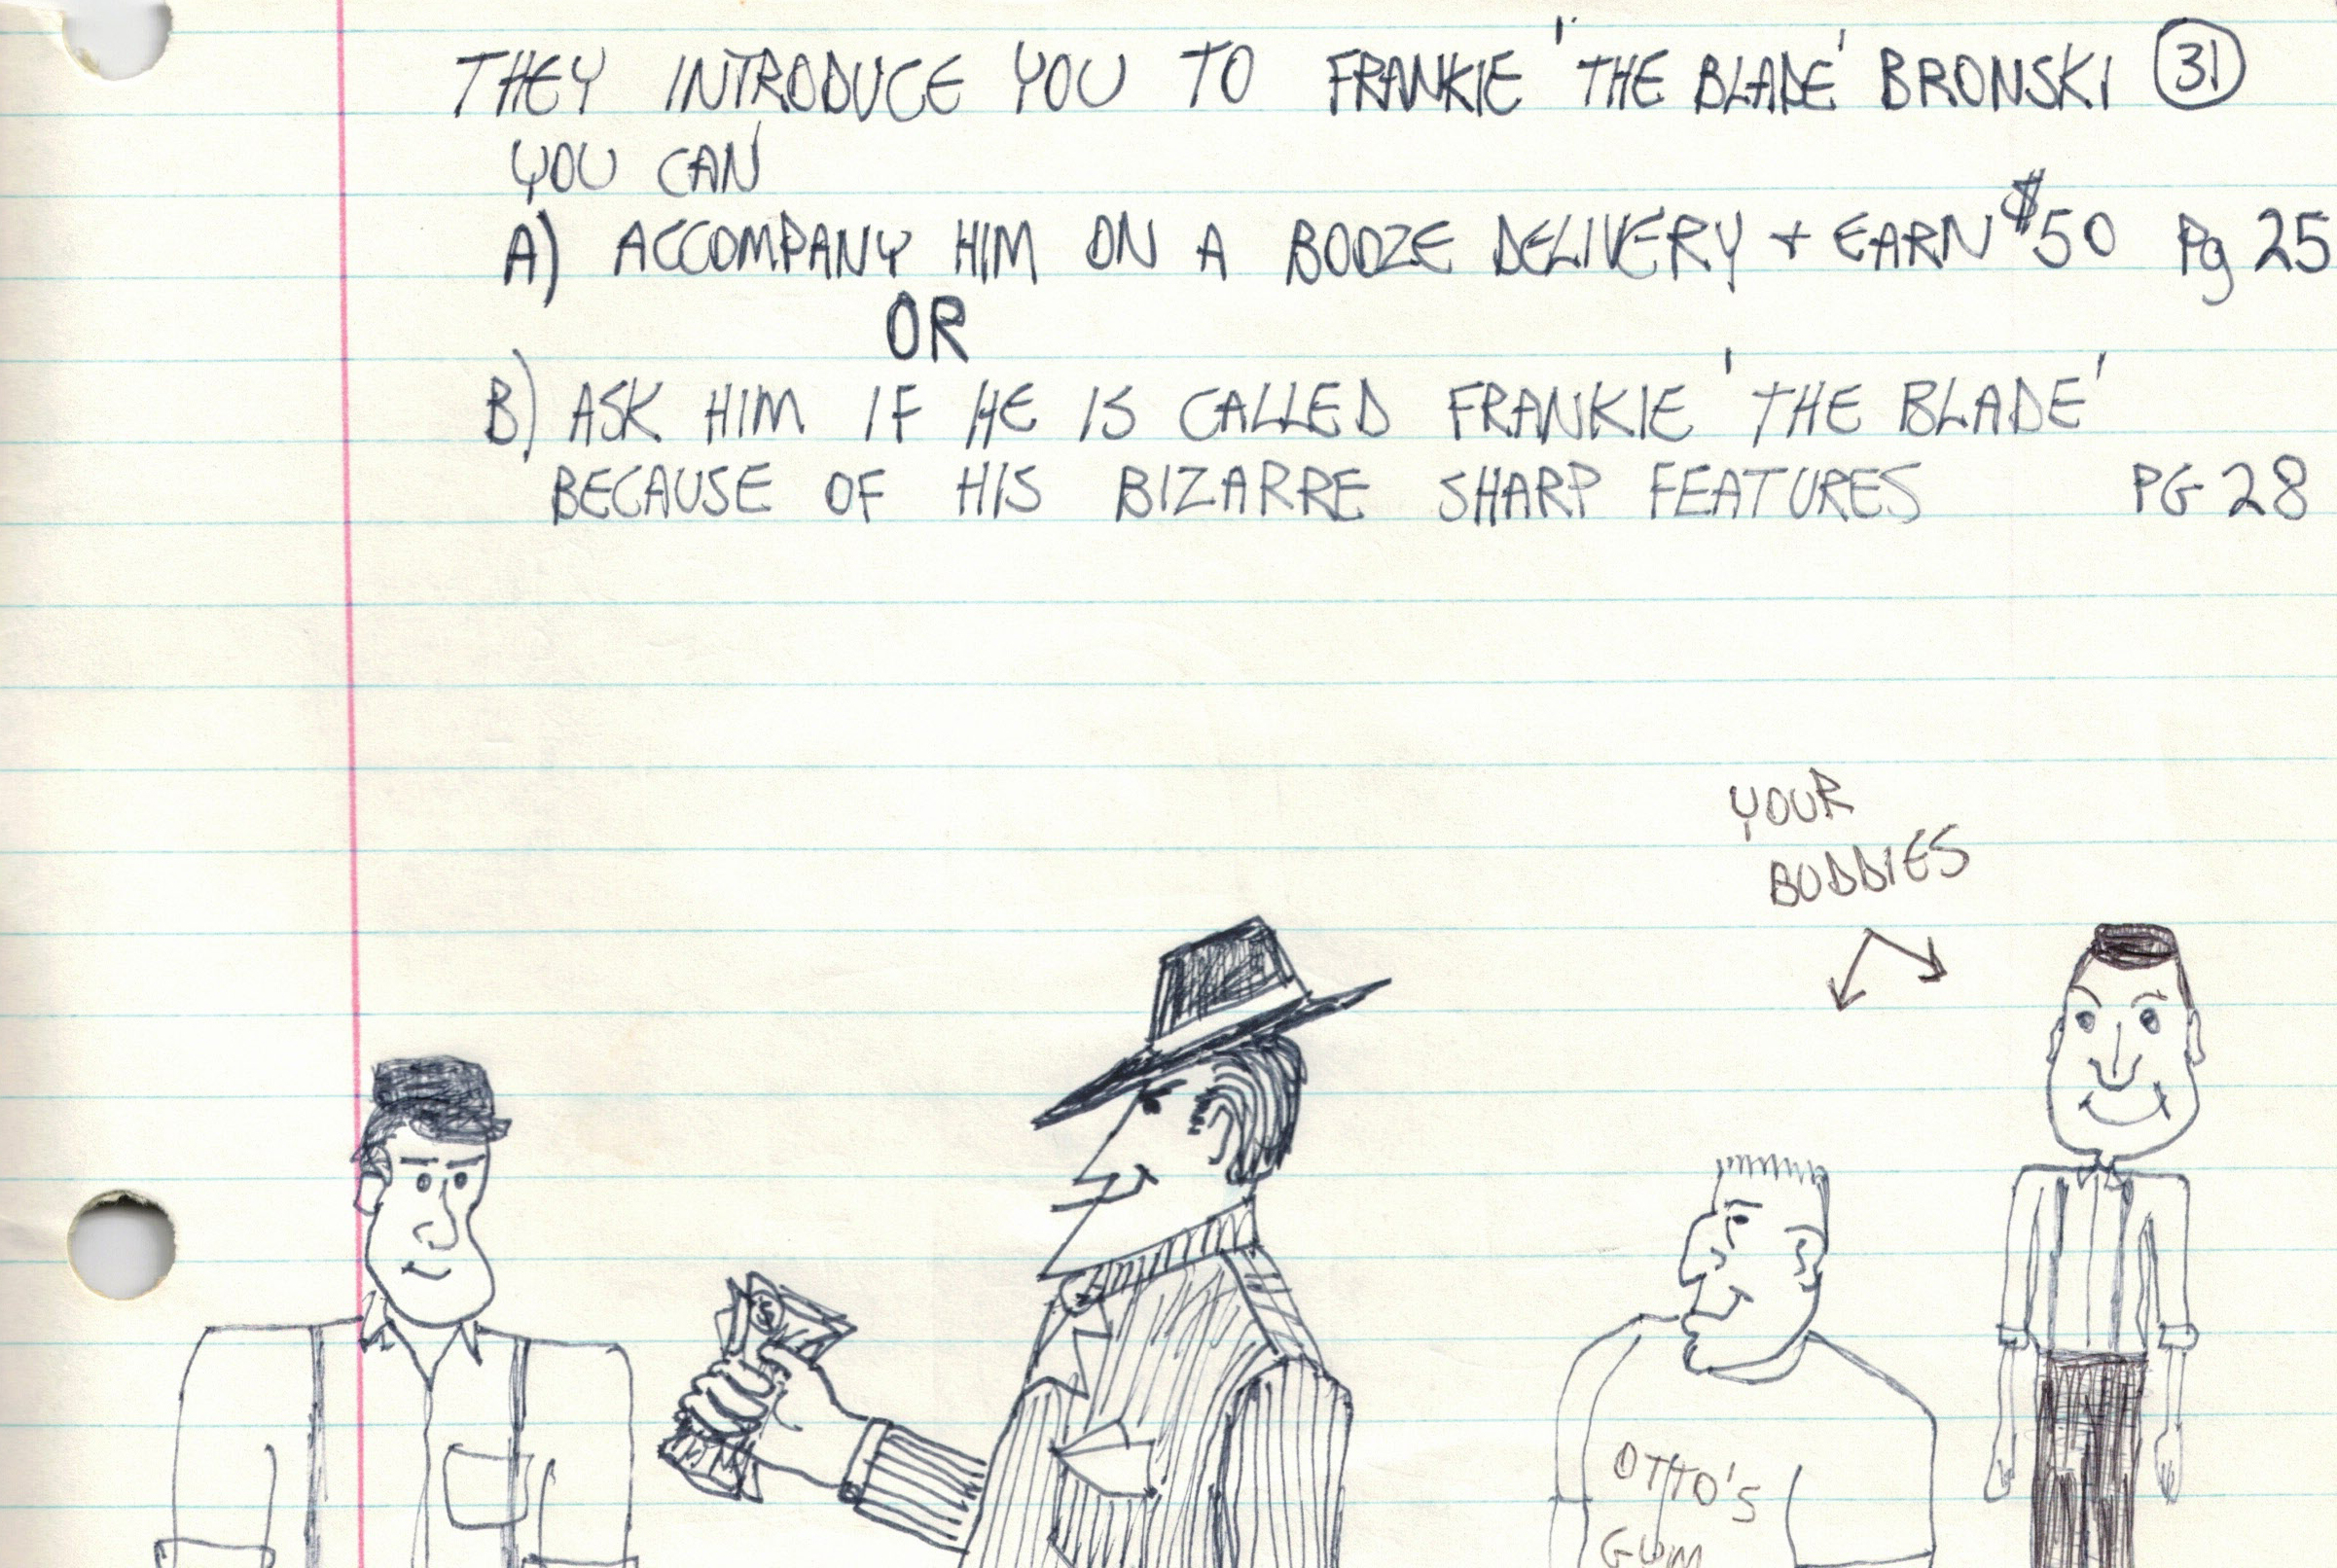 THEY INTRODUCE YOU TO FRANKIE 'THE BLADE' BRONSKI 31
YOU CAN
A) ACCOMPANY HIM ON A BOOZE DELIVERY + EARN $50 Pg 25
OR
B) ASK HIM IF HE IS CALLED FRANKIE 'THE BLADE'
BECAUSE OF HIS BIZARRE SHARP FEATURES PG 28
YOUR
BUDDIES
$
OTTO'S
GYM